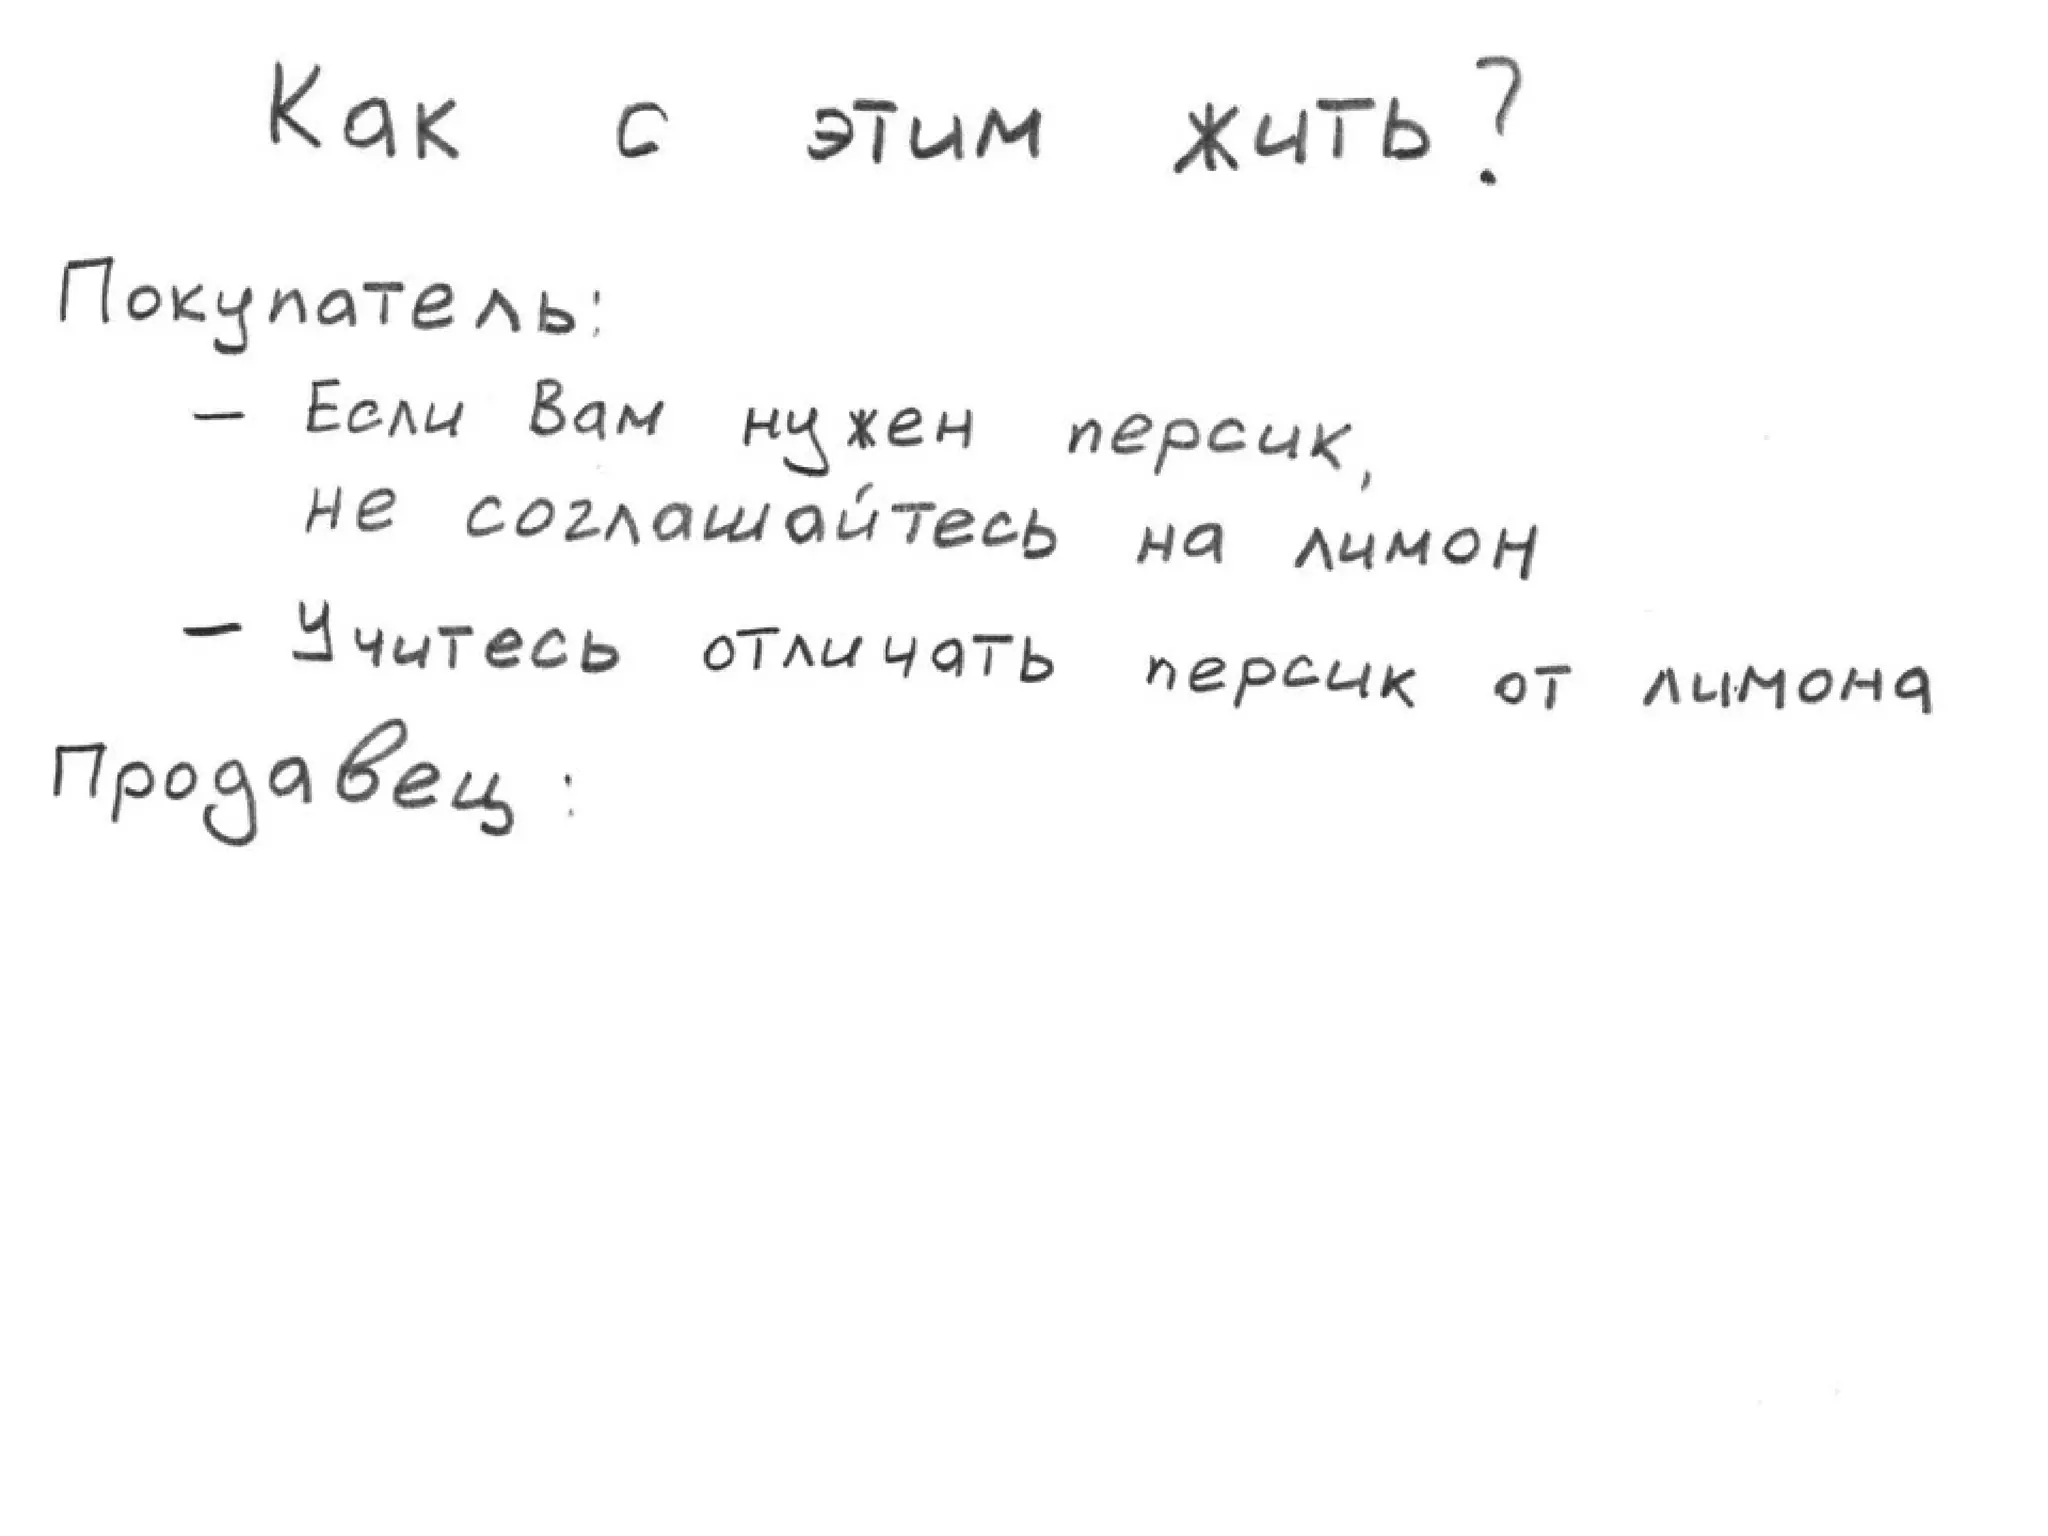 Как с этим жить?
Покупатель:
- Если Вам нужен персик,
не соглашайтесь на лимон
- Учитесь отличать персик от лимона
Продавец: